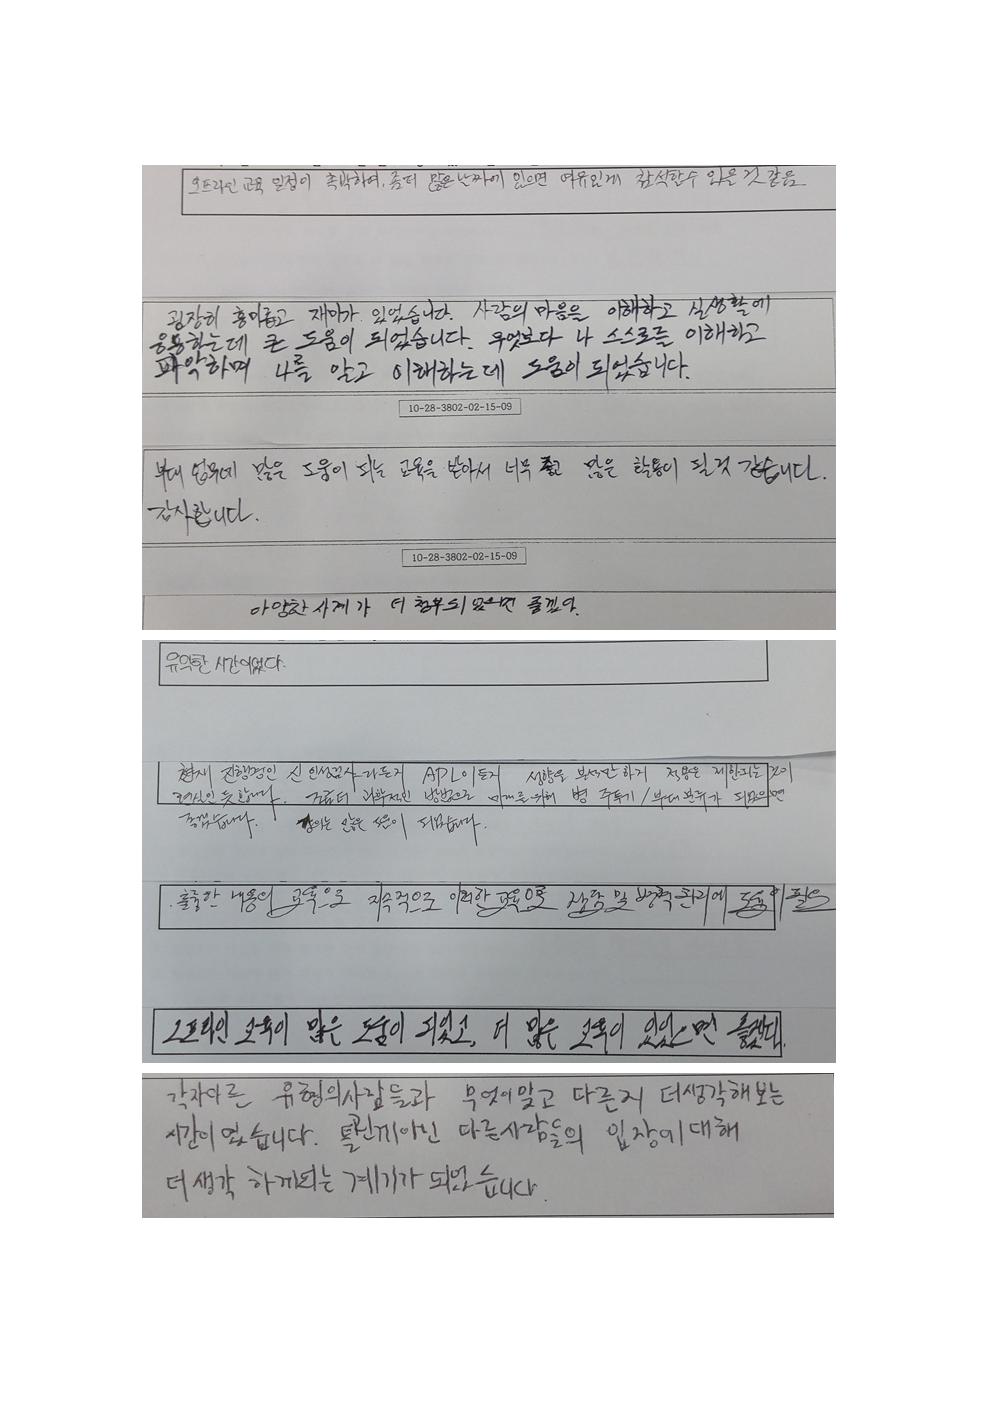 오프라인 교육 일정이 촉박하여, 좀더 많은 날짜에 있으면 여유있게 참석할수 있을것 같음
굉장히 흥미롭고 재미가 있었습니다. 사람의 마음을 이해하고 실생활에
응용하는데 큰 도움이 되었습니다. 무엇보다 나 스스로를 이해하고
파악하며 나를 알고 이해하는데 도움이 되었습니다.
10-28-3802-02-15-09
부대 업무에 많은 도움이 되는 교육을 받아서 너무 좋고 많은 활용이 될 것 같습니다.
감사합니다.
10-28-3802-02-15-09
다양한 사례가 더 첨부되었으면 좋겠다.
유익한 시간이었다.
현재 진행중인 신인성검사라든지 APL이든지 성향을 분석만하기 적용은 제한되는 것이
현실인 듯 합니다. 과학적인 방법으로 병 주특기/부대분류가 되었으면
좋겠습니다. 강의는 많은 도움이 되었습니다.
훌륭한 내용의 교육으로 지속적으로 이러한 교육으로 및 병력관리에 도움이 필요
오프라인 교육이 많은 도움이 되었고, 더 많은 교육이 있었으면 좋겠다.
각자다른 유형의사람들과 무엇이맞고 다른지 더생각해보는
시간이 였습니다. 틀린게아닌 다른사람들의 입장에대해
더생각 하게되는 계기가 되었습니다.